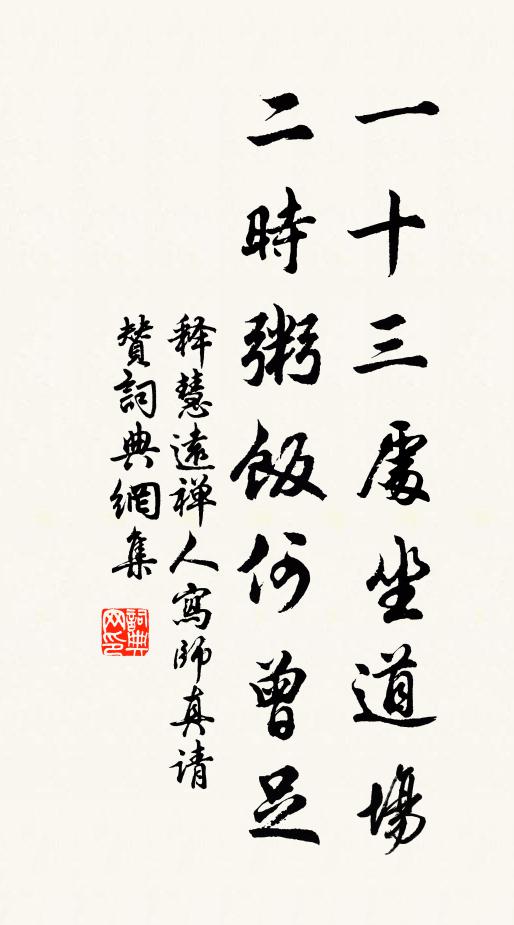 一十三處坐道場
二時粥飯何曾足
释慧遠禅人寫師真请
贊詞典網集
詞典网印